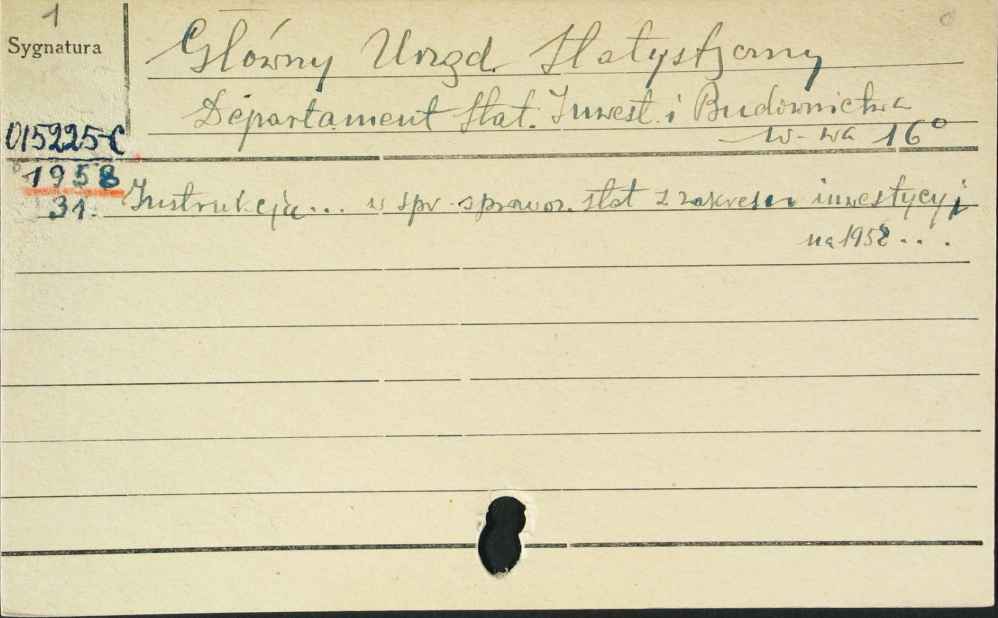 1
Sygnatura
Główny Urząd Statystyczny
Departament Stat. Inwest. i Budownictwa
W-wa 16°
015225-C
1958
31.
Instrukcja... w spr. sprawozd. stat z zakresu inwestycji
na 1958 ...